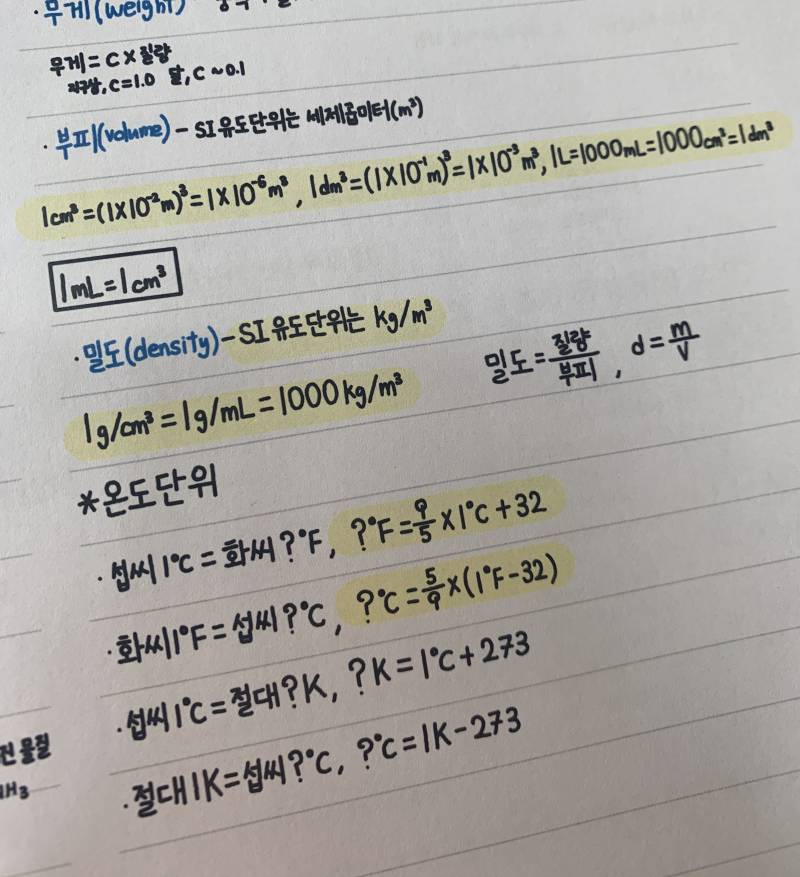 · 무게(weight)
무게 = C × 질량
지구상, C=1.0 달, C ~0.1
· 부피(volume) - SI 유도단위는 세제곱미터(m³)
1cm³ = (1×10⁻²m)³ = 1×10⁻⁶m³, 1dm³ = (1×10⁻¹m)³ = 1×10⁻³m³, 1L=1000mL=1000cm³=1dm³
1mL = 1cm³
· 밀도(density) - SI 유도단위는 kg/m³
밀도 = 질량/부피, d = m/V
1g/cm³ = 1g/mL = 1000kg/m³
*온도단위
· 섭씨 1°C = 화씨 ?°F, ?°F = 9/5 × 1°C + 32
· 화씨 1°F = 섭씨 ?°C, ?°C = 5/9 × (1°F - 32)
· 섭씨 1°C = 절대 ?K, ?K = 1°C + 273
· 절대 1K = 섭씨 ?°C, ?°C = 1K - 273
물질
H₃